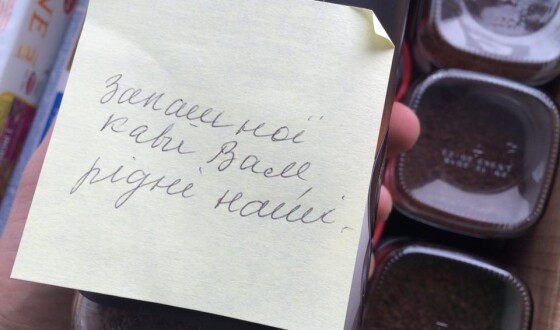 Запашної
кави Вам,
рідні наші.
NE